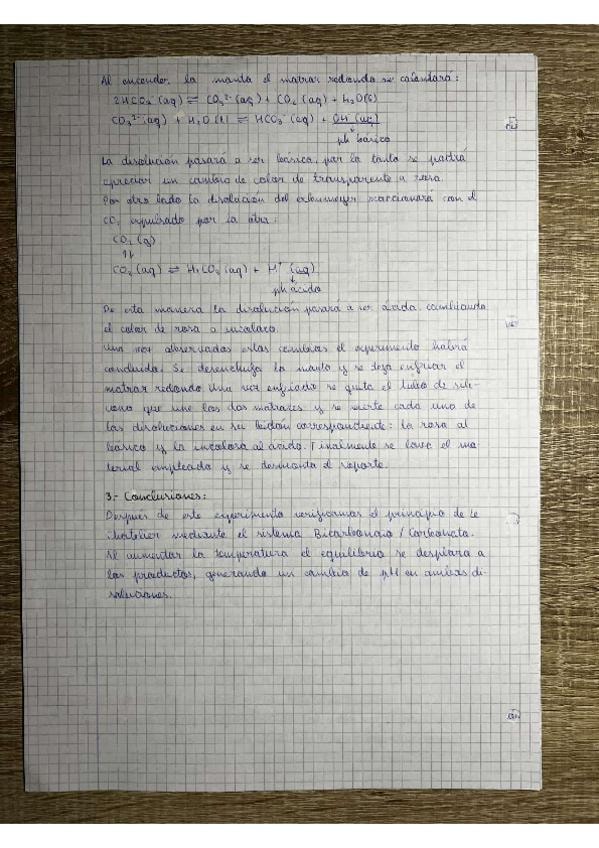 Al encender la manta el matraz redondo se calentará:
2HCO₃⁻(aq) ⇌ CO₃²⁻(aq) + CO₂(aq) + H₂O(l)
CO₃²⁻(aq) + H₂O(l) ⇌ HCO₃⁻(aq) + OH⁻(aq)
↓
ph básico
La disolución pasará a ser básica, por lo tanto se podrá
apreciar un cambio de color de transparente a rosa.
Por otro lado la disolución del erlenmeyer reaccionará con el
CO₂ expulsado por la otra:
CO₂(g)
⇅
CO₂(aq) ⇌ H₂CO₃(aq) + H⁺(aq)
↓
ph ácido
De esta manera la disolución pasará a ser ácida, cambiando
el color de rosa a incoloro.
Una vez observados estos cambios el experimento habrá
concluido. Se desenchufa la manta y se deja enfriar el
matraz redondo. Una vez enfriado se quita el tubo de sili-
cona que une los dos matraces y se vierte cada una de
las disoluciones en su bidón correspondiente: la rosa al
básico y la incolora al ácido. Finalmente se lava el ma-
terial empleado y se desmonta el soporte.
3.- Conclusiones:
Después de este experimento verificamos el principio de Le
Chatelier mediante el sistema Bicarbonato / Carbonato.
Al aumentar la temperatura el equilibrio se desplaza a
los productos, generando un cambio de pH en ambas di-
soluciones.